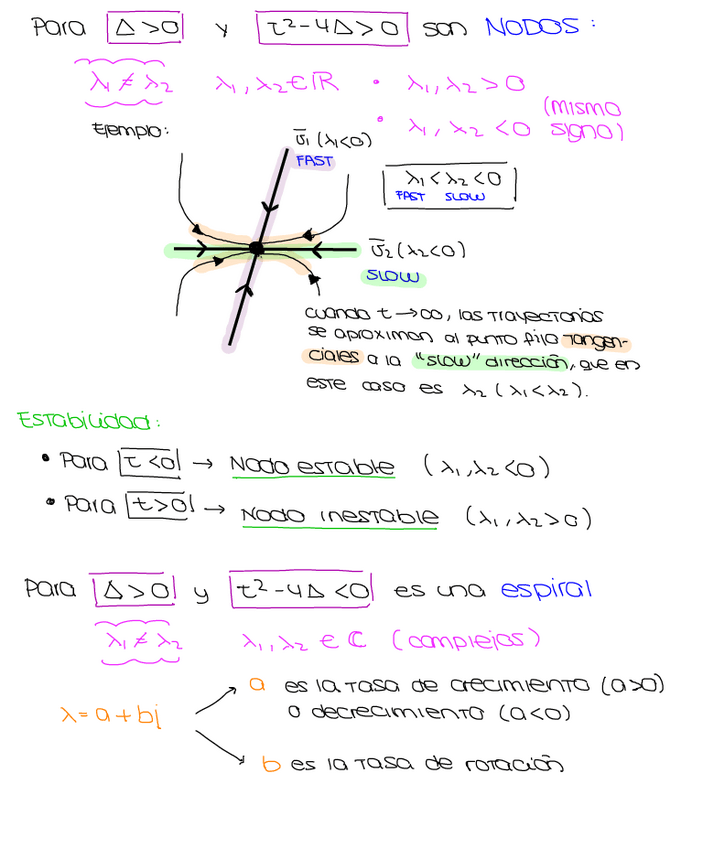 Para Δ>0 y τ²-4Δ>0 son NODOS:
λ₁ ≠ λ₂ λ₁, λ₂ ∈ ℝ • λ₁, λ₂ > 0
• λ₁, λ₂ < 0 (mismo signo)
Ejemplo:
v̄₁ (λ₁<0)
FAST
λ₁ < λ₂ < 0
FAST SLOW
v̄₂ (λ₂<0)
SLOW
cuando t→∞, las trayectorias
se aproximan al punto fijo tangen-
ciales a la "slow" dirección, que en
este caso es λ₂ (λ₁<λ₂).
Estabilidad:
• Para τ<0 → Nodo estable (λ₁,λ₂<0)
• Para τ>0 → Nodo inestable (λ₁,λ₂>0)
Para Δ>0 y τ²-4Δ<0 es una espiral
λ₁ ≠ λ₂ λ₁, λ₂ ∈ ℂ (complejos)
a es la tasa de crecimiento (a>0)
o decrecimiento (a<0)
λ=a+bi
b es la tasa de rotación